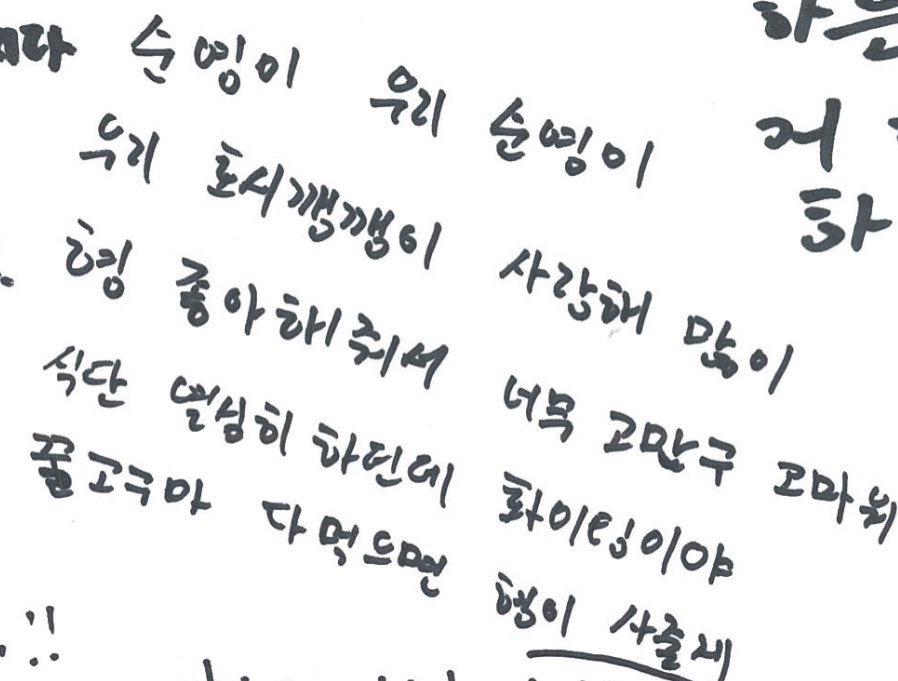 순영이 우리 순영이
우리 호시깽깽이 사랑해 많이
형 좋아해줘서 너무 고만구 고마워
식단 열심히 하던데 화이팅이야
꿀고구마 다 먹으면 형이 사줄게